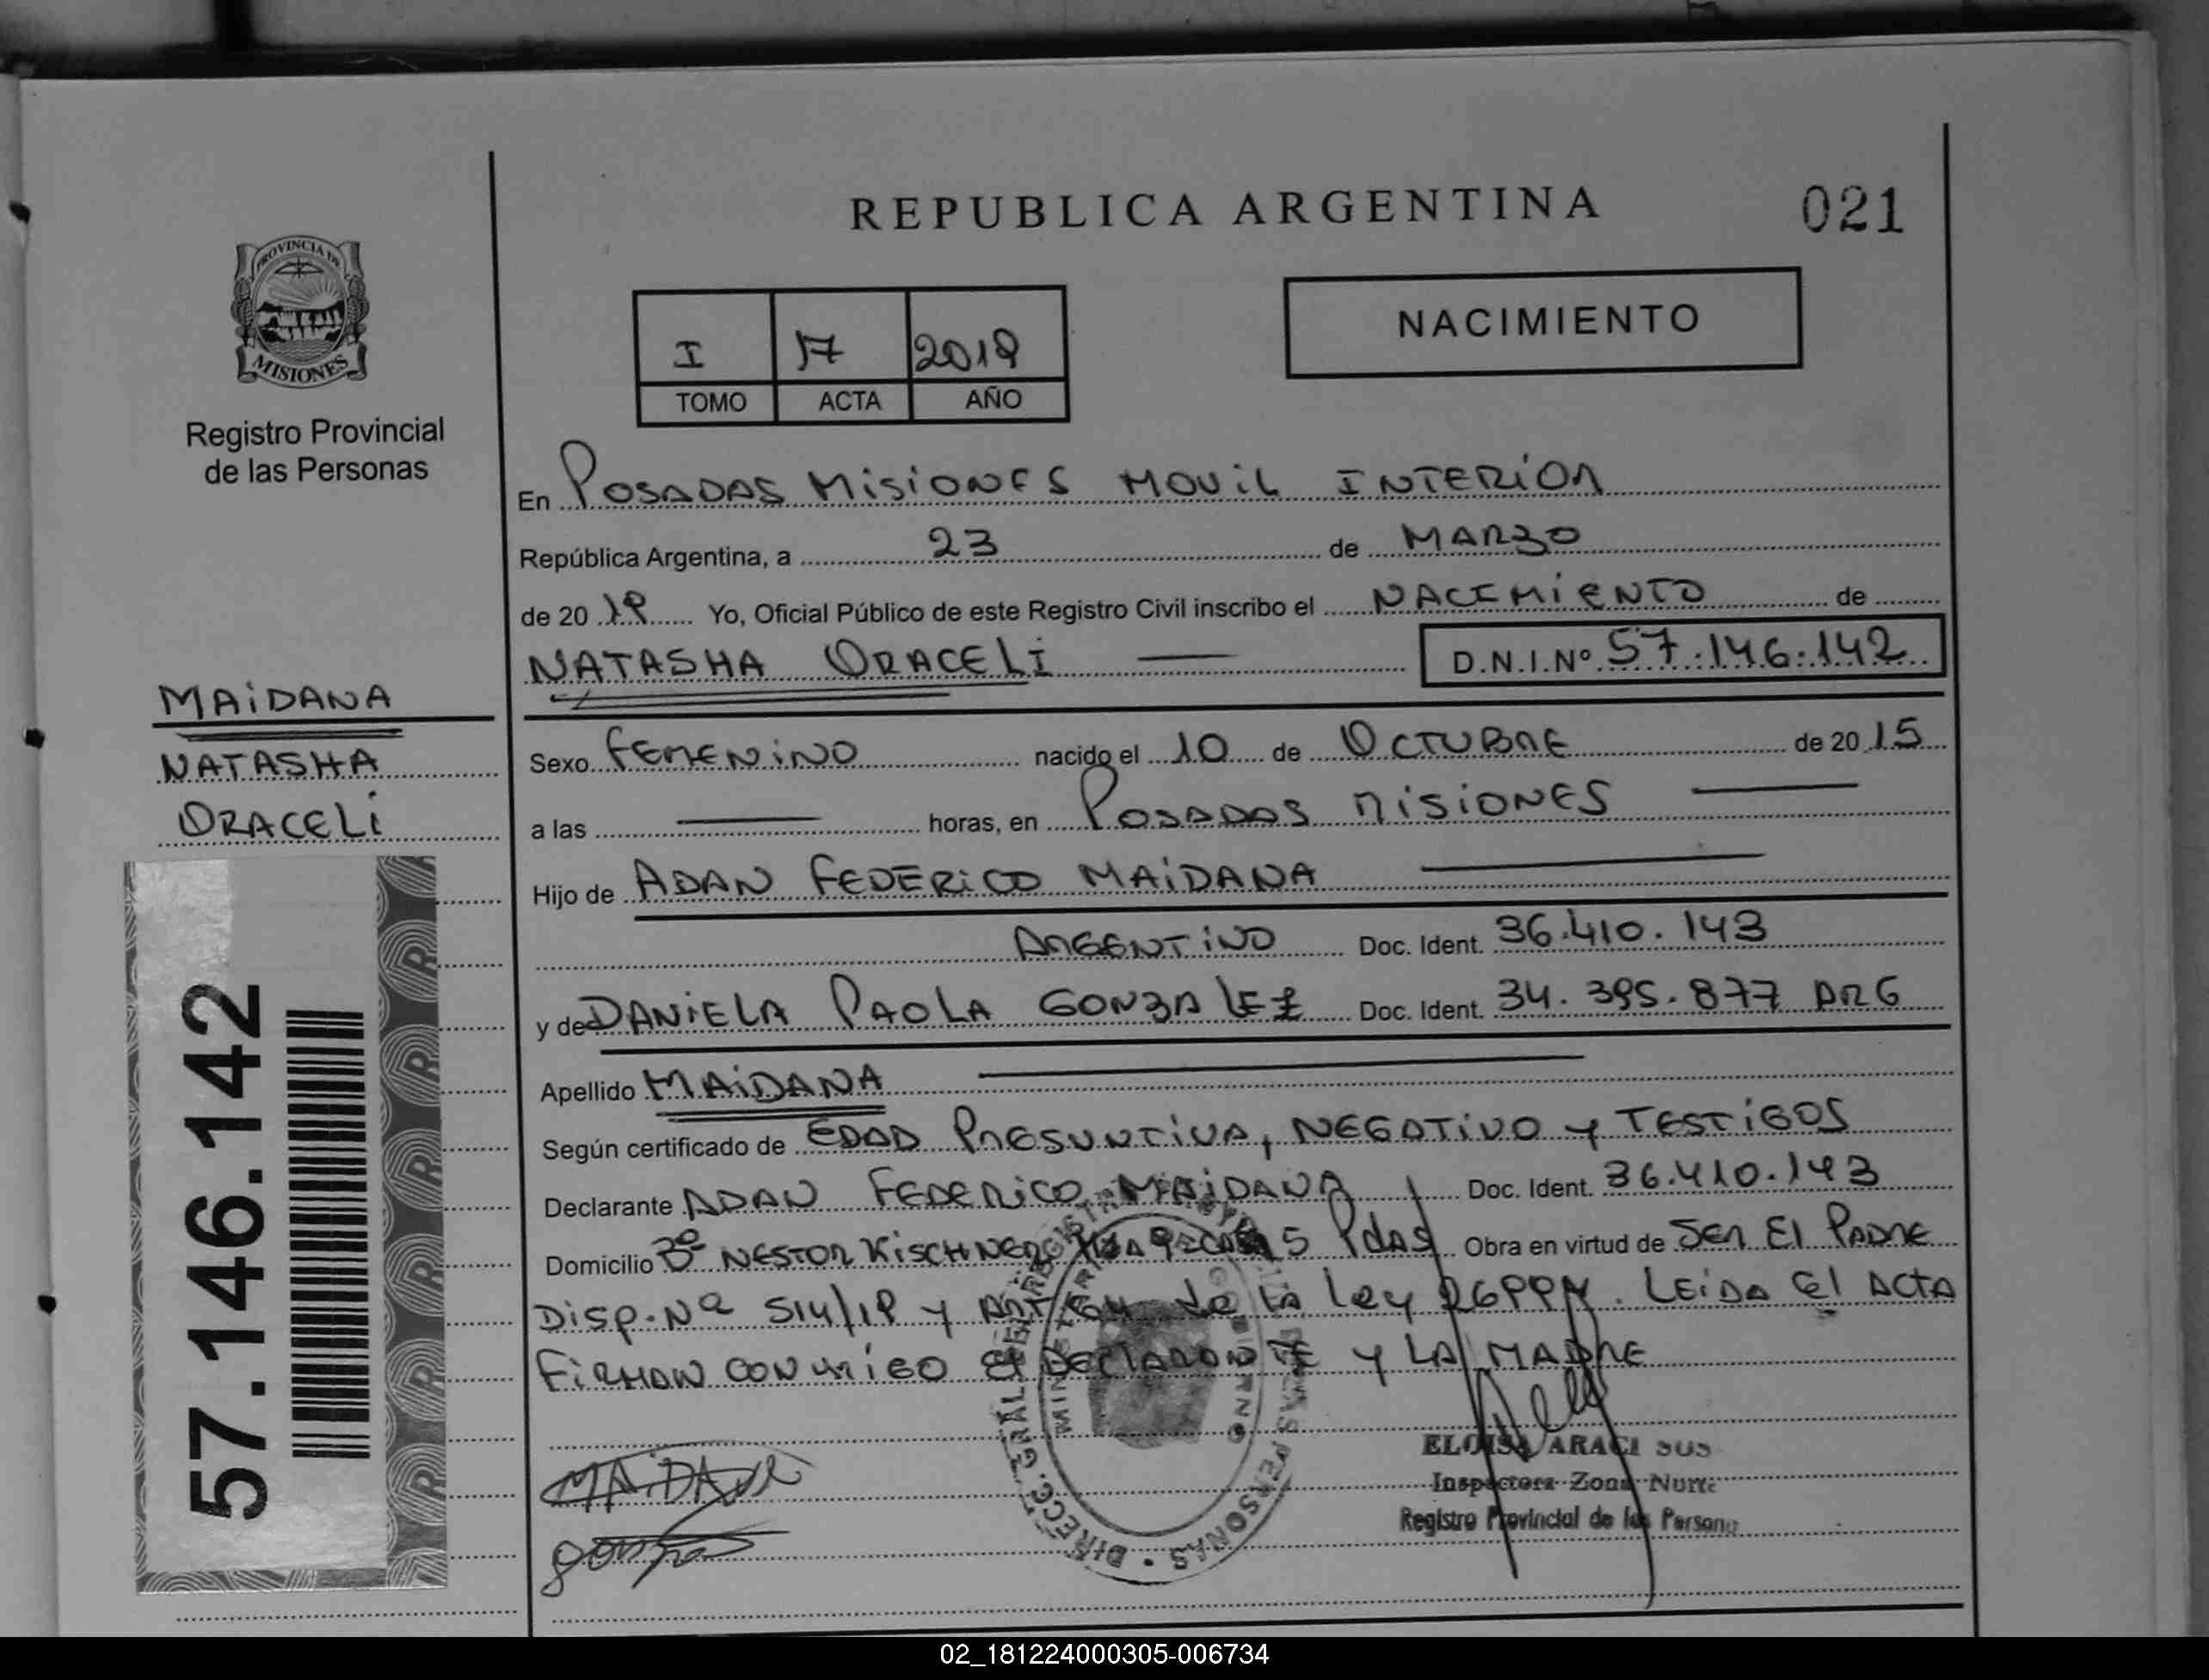 REPUBLICA ARGENTINA
021
PROVINCIA DE
MISIONES
Registro Provincial
de las Personas
I 17 2019
TOMO ACTA AÑO
NACIMIENTO
En POSADAS MISIONES MOVIL INTERIOR
República Argentina, a 23 de MARZO
de 20 19 Yo, Oficial Público de este Registro Civil inscribo el NACIMIENTO de
NATASHA ORACELI D.N.I.Nº 57.146.142
MAIDANA
NATASHA
ORACELI
57.146.142
Sexo FEMENINO nacido el 10 de OCTUBRE de 20 15
a las horas, en POSADAS MISIONES
Hijo de ADAN FEDERICO MAIDANA
ARGENTINO Doc. Ident. 36.410.143
y de DANIELA PAOLA GONZALEZ Doc. Ident. 34.395.877 ARG
Apellido MAIDANA
Según certificado de EDAD PRESUNTIVA, NEGATIVO Y TESTIGOS
Declarante ADAN FEDERICO MAIDANA Doc. Ident. 36.410.143
Domicilio Bº NESTOR KISCHNER 5 Pdas Obra en virtud de SER El PADRE
DISP. Nº 514/19 y de LA ley LEIDA El ACTA
FIRMAN CONMIGO El DECLARANTE Y LA MADRE
MAIDANA
DIRECC. GRAL. DEL REGISTRO DE LAS PERSONAS
MINISTERIO GOBIERNO
ELOISA ARACI
Inspectora Zona Norte
Registro Provincial de las Personas
02_181224000305-006734